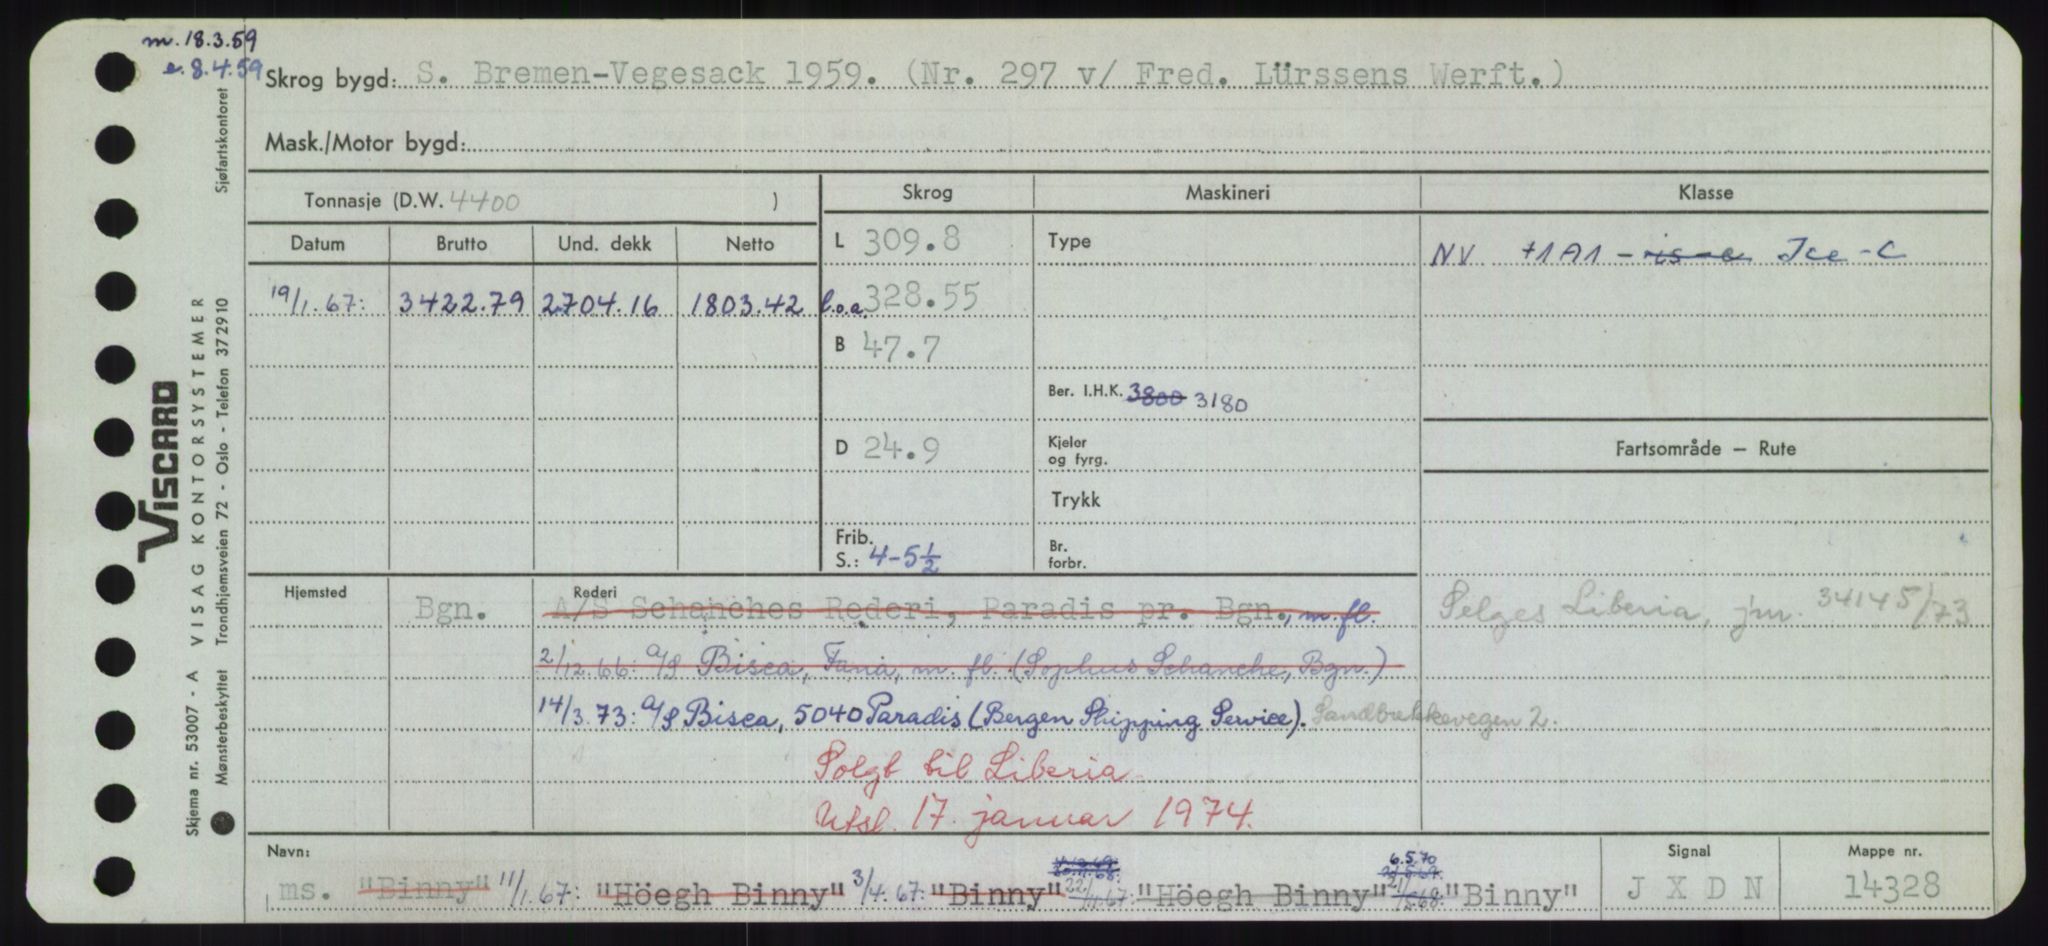 m. 18.3.59
e. 8.4.59
Skrog bygd: S. Bremen-Vegesack 1959. (Nr. 297 v/ Fred. Lürssens Werft.)
Mask./Motor bygd:
Tonnasje (D.W. 4400 )
Skrog Maskineri Klasse
Datum Brutto Und. dekk Netto
L 309.8 Type NV +1A1 - is-c Ice-C
19/1.67: 3422.79 2704.16 1803.42 l.o.a. 328.55
B 47.7
Ber. I.H.K. 3800 3180
D 24.9 Kjeler og fyrg. Fartsområde – Rute
Trykk
Frib. S.: 4-5½ Br. forbr.
Hjemsted Bgn. Rederi A/S Schanches Rederi, Paradis pr. Bgn., m.fl. Selges Liberia, jnr. 34145/73
2/12.66: A/S Bisca, Fana, m. fl. (Sophus Schanche, Bgn.)
14/3.73: A/S Bisca, 5040 Paradis (Bergen Shipping Service). Sandbrekkevegen 2.
Solgt til Liberia
Utsl. 17. januar 1974.
Navn: Signal Mappe nr.
6.5.70
ms. "Binny" 11/1.67: "Höegh Binny" 3/4.67: "Binny" 22/11.67: "Höegh Binny" 21/5.68: "Binny" J X D N 14328
VISCARD
Skjema nr. 53007 - A VISAG KONTORSYSTEMER
Mønsterbeskyttet Trondhjemsveien 72 - Oslo - Telefon 372910 Sjøfartskontoret